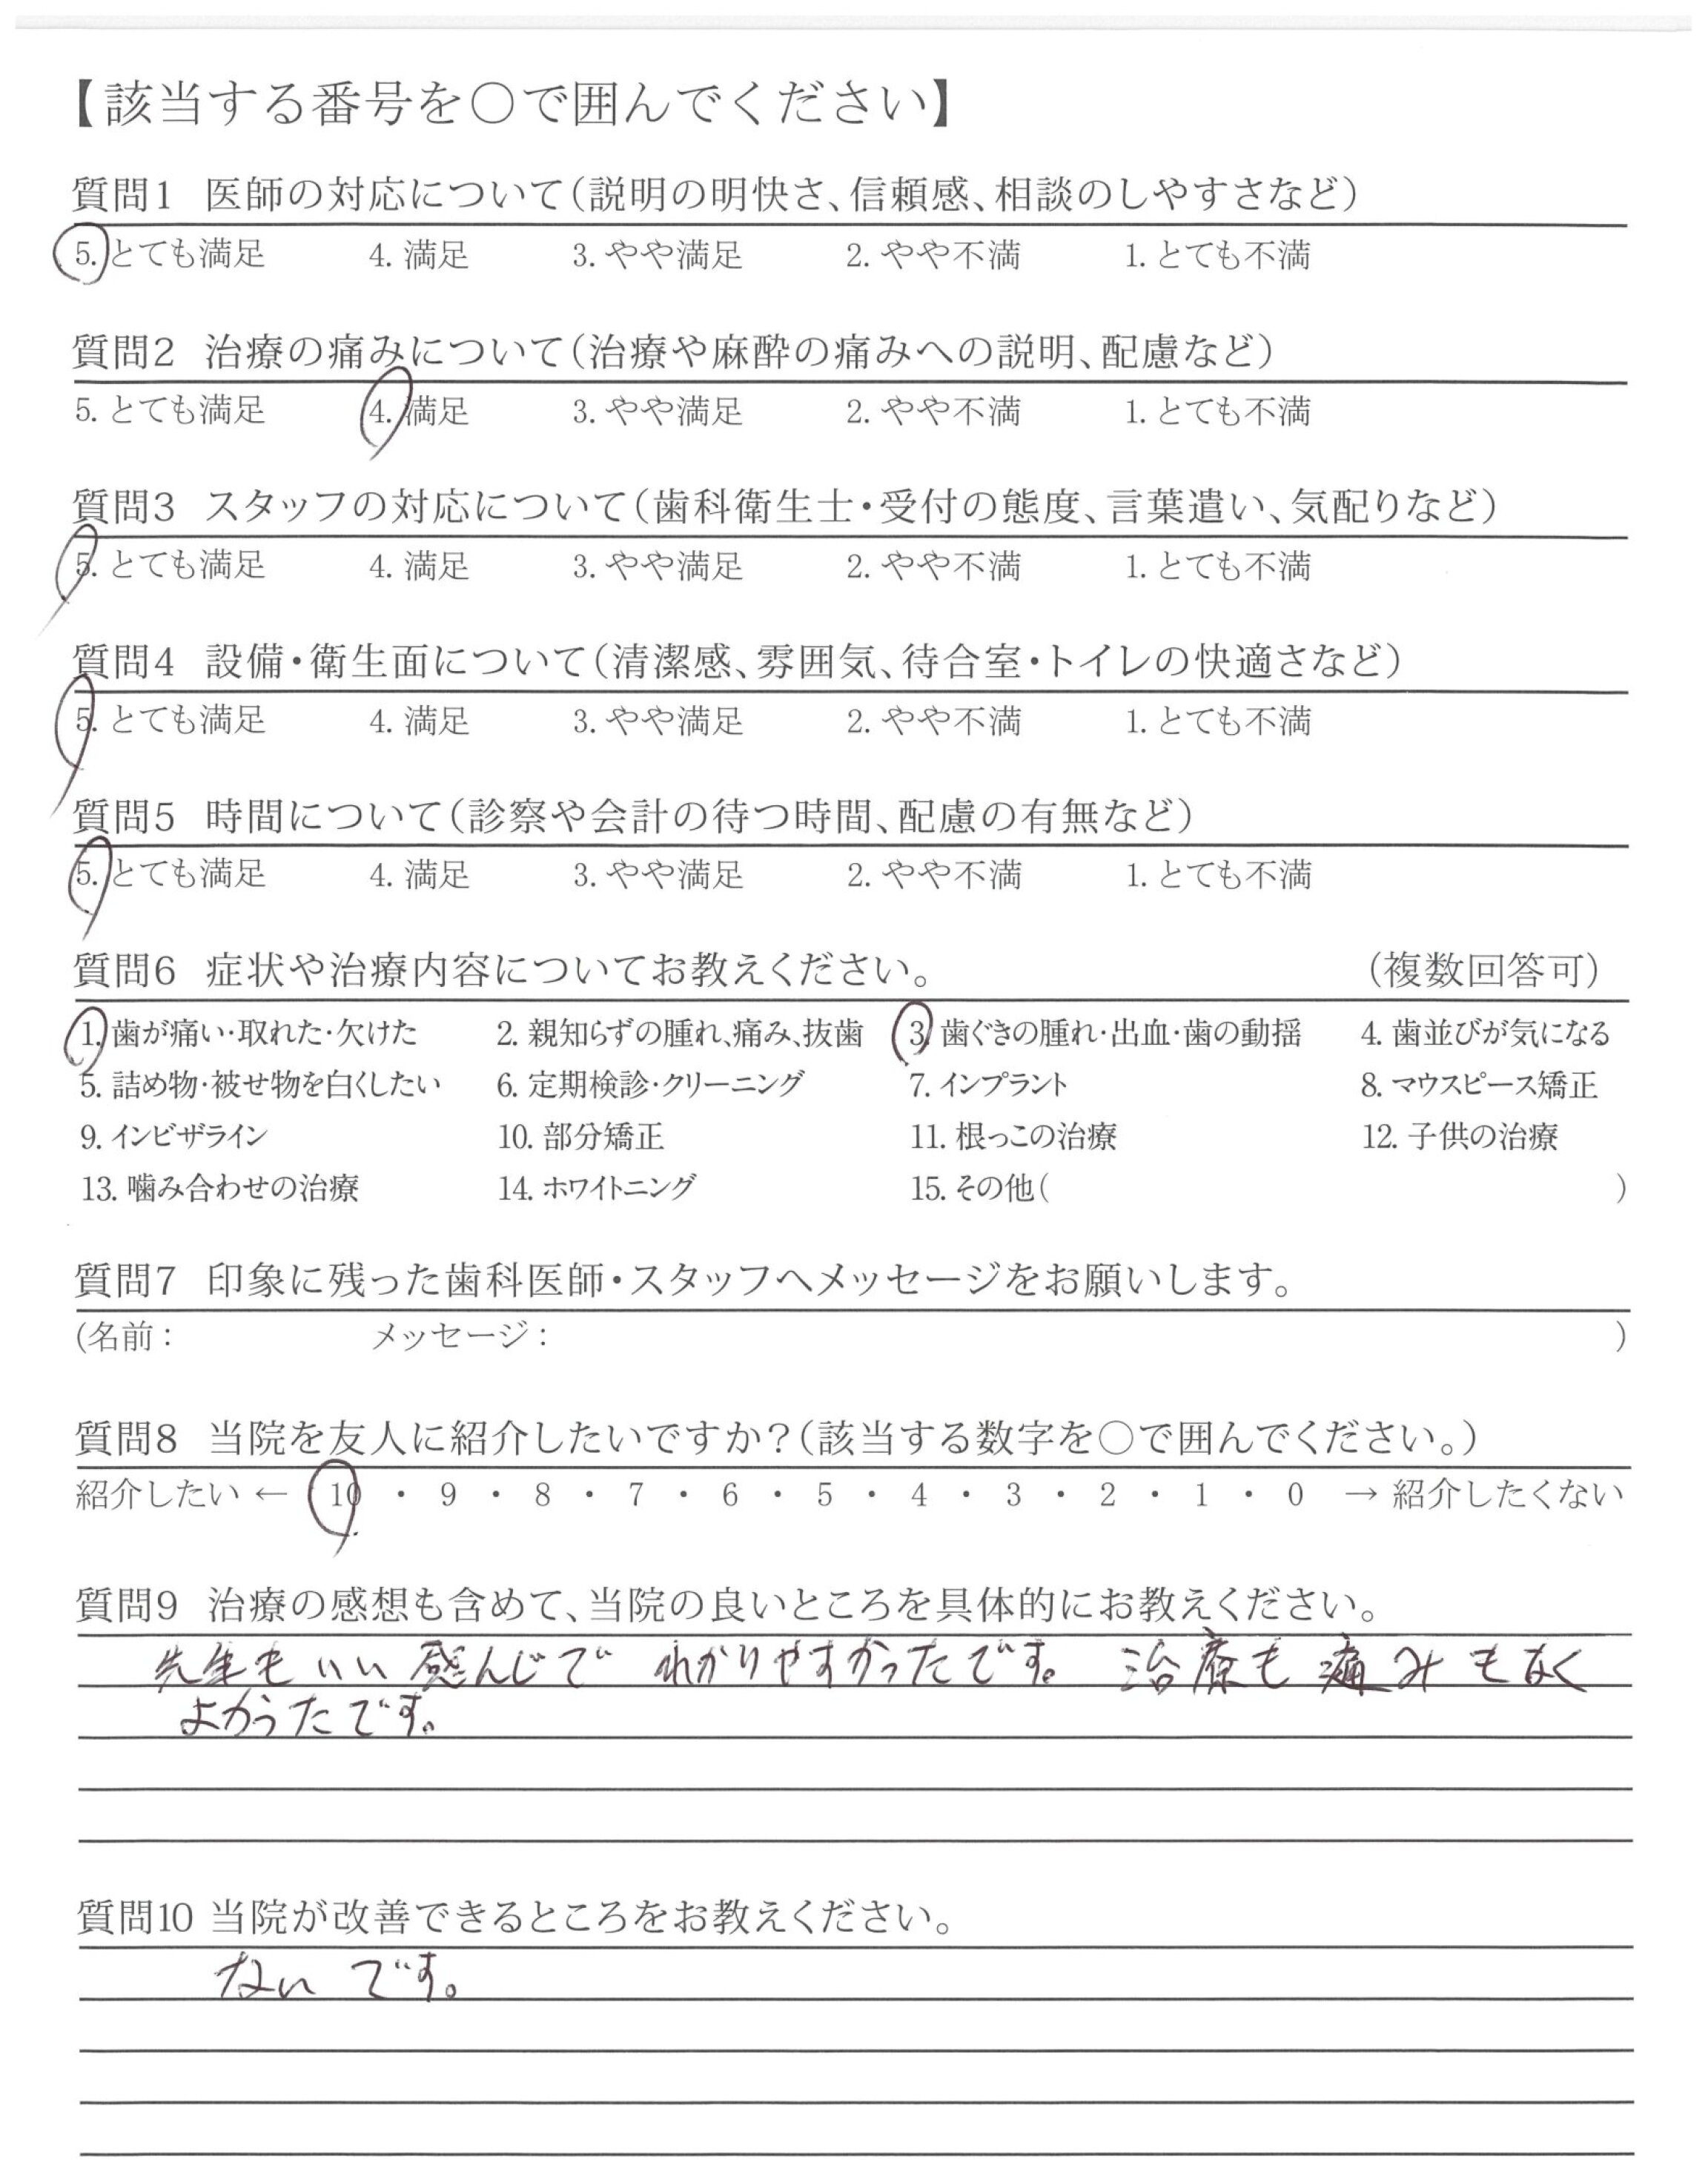 【該当する番号を○で囲んでください】
質問1 医師の対応について(説明の明快さ、信頼感、相談のしやすさなど)
5. とても満足 4. 満足 3. やや満足 2. やや不満 1. とても不満
質問2 治療の痛みについて(治療や麻酔の痛みへの説明、配慮など)
5. とても満足 4. 満足 3. やや満足 2. やや不満 1. とても不満
質問3 スタッフの対応について(歯科衛生士・受付の態度、言葉遣い、気配りなど)
5. とても満足 4. 満足 3. やや満足 2. やや不満 1. とても不満
質問4 設備・衛生面について(清潔感、雰囲気、待合室・トイレの快適さなど)
5. とても満足 4. 満足 3. やや満足 2. やや不満 1. とても不満
質問5 時間について(診察や会計の待つ時間、配慮の有無など)
5. とても満足 4. 満足 3. やや満足 2. やや不満 1. とても不満
質問6 症状や治療内容についてお教えください。 (複数回答可)
1. 歯が痛い・取れた・欠けた 2. 親知らずの腫れ、痛み、抜歯 3. 歯ぐきの腫れ・出血・歯の動揺 4. 歯並びが気になる
5. 詰め物・被せ物を白くしたい 6. 定期検診・クリーニング 7. インプラント 8. マウスピース矯正
9. インビザライン 10. 部分矯正 11. 根っこの治療 12. 子供の治療
13. 噛み合わせの治療 14. ホワイトニング 15. その他( )
質問7 印象に残った歯科医師・スタッフへメッセージをお願いします。
(名前: メッセージ: )
質問8 当院を友人に紹介したいですか?(該当する数字を○で囲んでください。)
紹介したい ← 10 ・ 9 ・ 8 ・ 7 ・ 6 ・ 5 ・ 4 ・ 3 ・ 2 ・ 1 ・ 0 → 紹介したくない
質問9 治療の感想も含めて、当院の良いところを具体的にお教えください。
先生もいい感んじで わかりやすかったです。 治療も痛みもなく
よかったです。
質問10 当院が改善できるところをお教えください。
ないです。